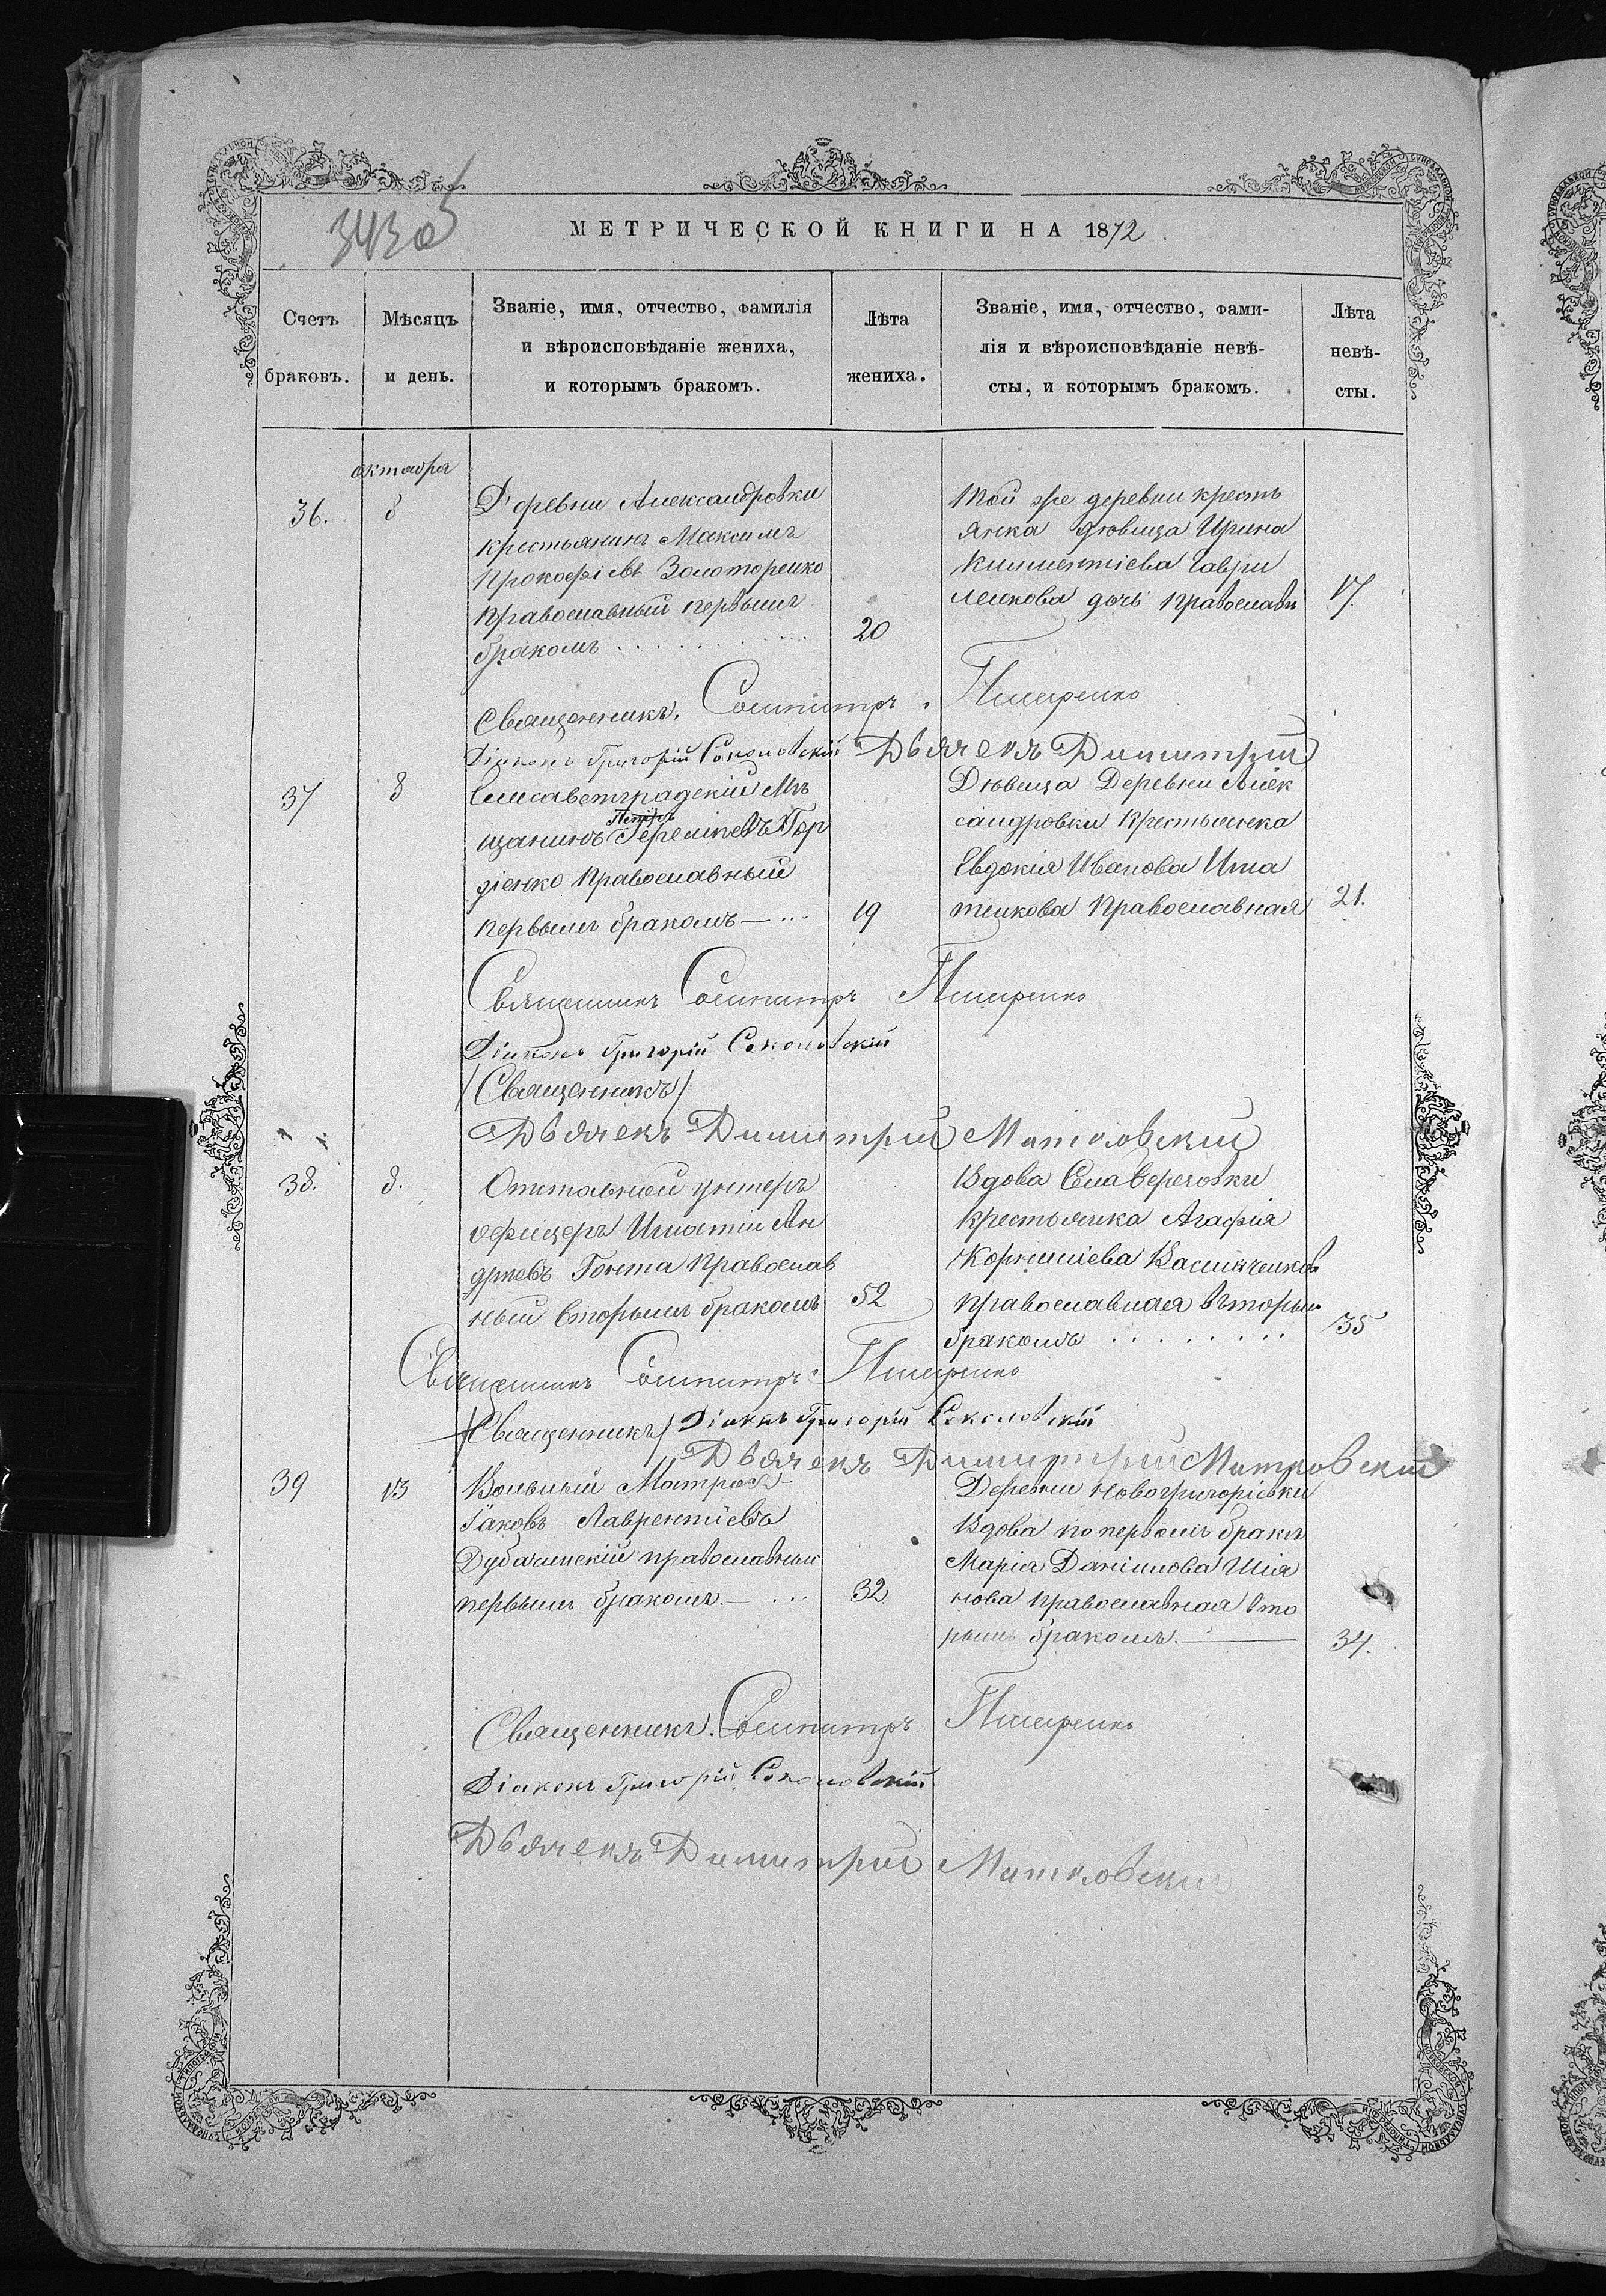 343об
МЕТРИЧЕСКОЙ КНИГИ НА 1872
Счетъ браковъ.
Мѣсяцъ и день.
Званіе, имя, отчество, фамилія
и вѣроисповѣданіе жениха,
и которымъ бракомъ.
Лѣта жениха.
Званіе, имя, отчество, фами-
лія и вѣроисповѣданіе невѣ-
сты, и которымъ бракомъ.
Лѣта невѣ-
сты.
октября
36.
8
Деревни Александровки
крестьянинъ Максимъ
Прокофіевъ Золоторенко
православный первымъ
бракомъ . . . . . . .
20
Той же деревни кресть
янка дѣвица Ирина
Климентіева Гаври
ленкова дочь православн
17.
Священникъ. Сосипатръ Писаренко
Діаконъ Григорій Соколовскій Дьячекъ Димитрій
37
8
Елисаветградскій Мѣ
Петръ
щанинъ Гор
діенко Православный
первымъ бракомъ — ...
19
Дѣвица Деревни Алек
сандровки Крестьянка
Евдокія Иванова Игна
тенкова Православная
21.
Священникъ Сосипатръ Писаренко
Діаконъ Григорій Соколовскій
(Священникъ)
Дьячекъ Димитрій Матковскій
38.
8.
Отставной унтеръ
офицеръ Игнатій Ан
дреевъ Гонта Православ
ный вторымъ бракомъ
52
Вдова Села Веречовки
крестьянка Агафія
Корниліева Василченкова
православная вторым
бракомъ . . . . . . . .
35
Священникъ Сосипатръ Писаренко
(Священникъ) Діаконъ Григорій Соколовскій
Дьячекъ Димитрій Матковскій
39
13
Вольный Матросъ
Іаковъ Лаврентіевъ
православный
первымъ бракомъ. — ...
32
Деревни Новогригорівки
Вдова по первомъ бракѣ
Марія Даніилова Шія
нова православная вто
рымъ бракомъ. —
34.
Священникъ. Сосипатръ Писаренко
Діаконъ Григорій Соколовскій
Дьячекъ Димитрій Матковскій